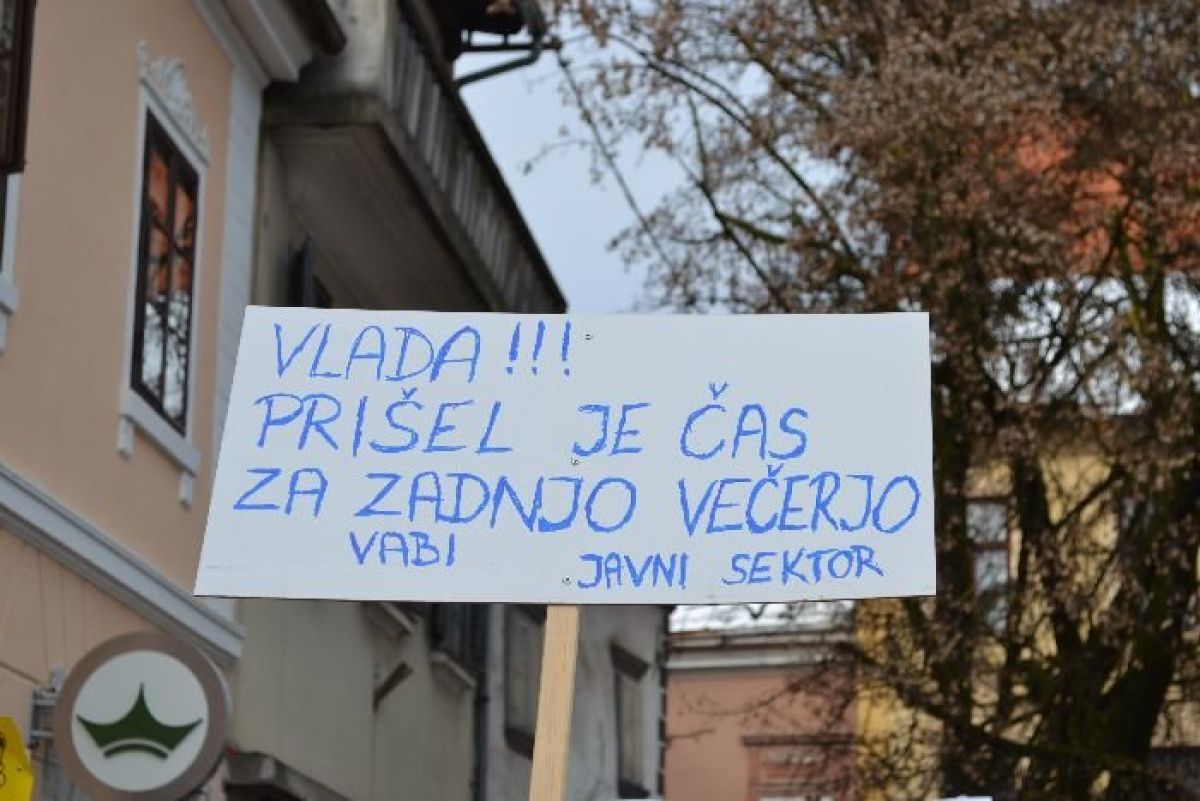 VLADA!!!
PRIŠEL JE ČAS
ZA ZADNJO VEČERJO
VABI JAVNI SEKTOR